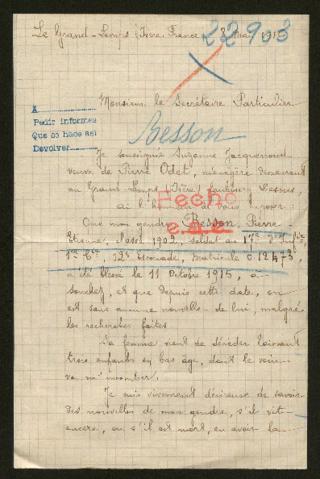 Le Grand-Lemps (Isère) France 3 Mai 1916
22903
Monsieur le Secrétaire Particulier
A
Pedir informes
Que se hace así
Devolver
Besson
Je soussignée Suzanne Jacquemond
veuve de Pierre Odet, ménagère demeurant
au Grand-Lemps (Isère)
ai l'honneur de vous
Fecho
Que mon gendre Besson, Pierre
Etienne, classe 1902, soldat au
1re Cie, 12e Escouade, Matricule 01247
a été blessé le 11 Octobre 1915, à
Souchez, et que depuis cette date, on
est sans aucune nouvelle de lui, malgré
les recherches faites
Sa femme vient de décéder laissant
trois enfants en bas âge, dont le soin
va m'incomber.
Je suis vivement désireuse de savoir
des nouvelles de mon gendre, s'il vit
encore, ou s'il est mort, en avoir la